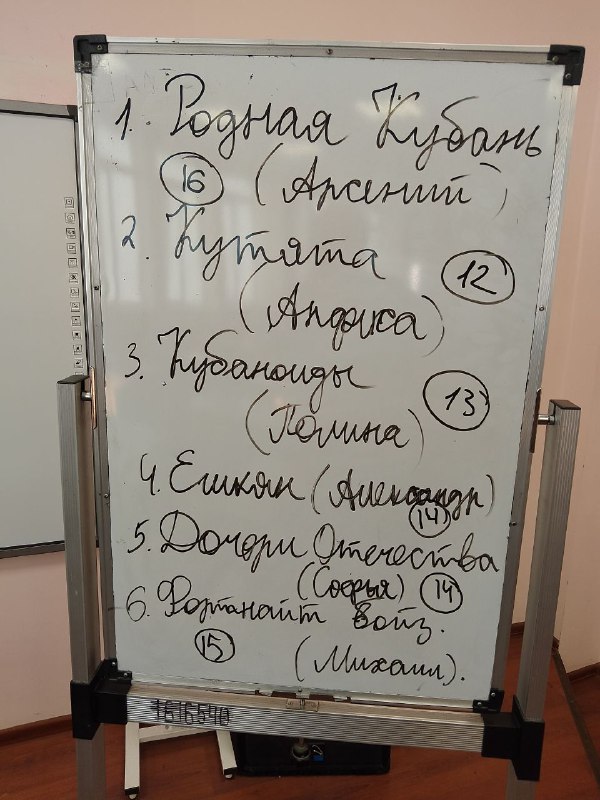 1. Родная Кубань
16 (Арсений)
2. Кутята
12
(Анфиса)
3. Кубаноиды
13
(Полина)
4. Ешкян (Александр)
14
5. Дочери Отечества
(Софья) 14
6. Фортнайт Бойз.
15
(Михаил).
1516540